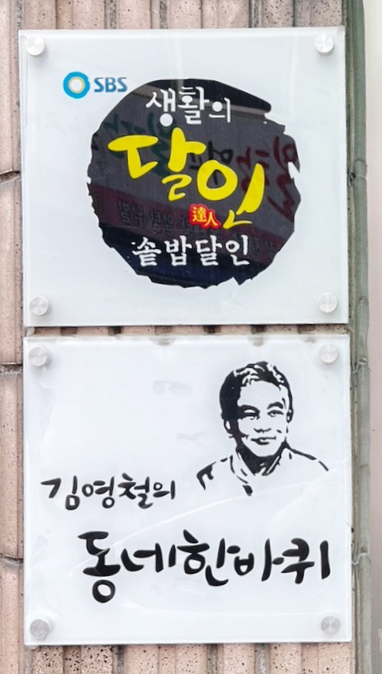 SBS
생활의
달인
達人
솥밥달인
김영철의
동네한바퀴